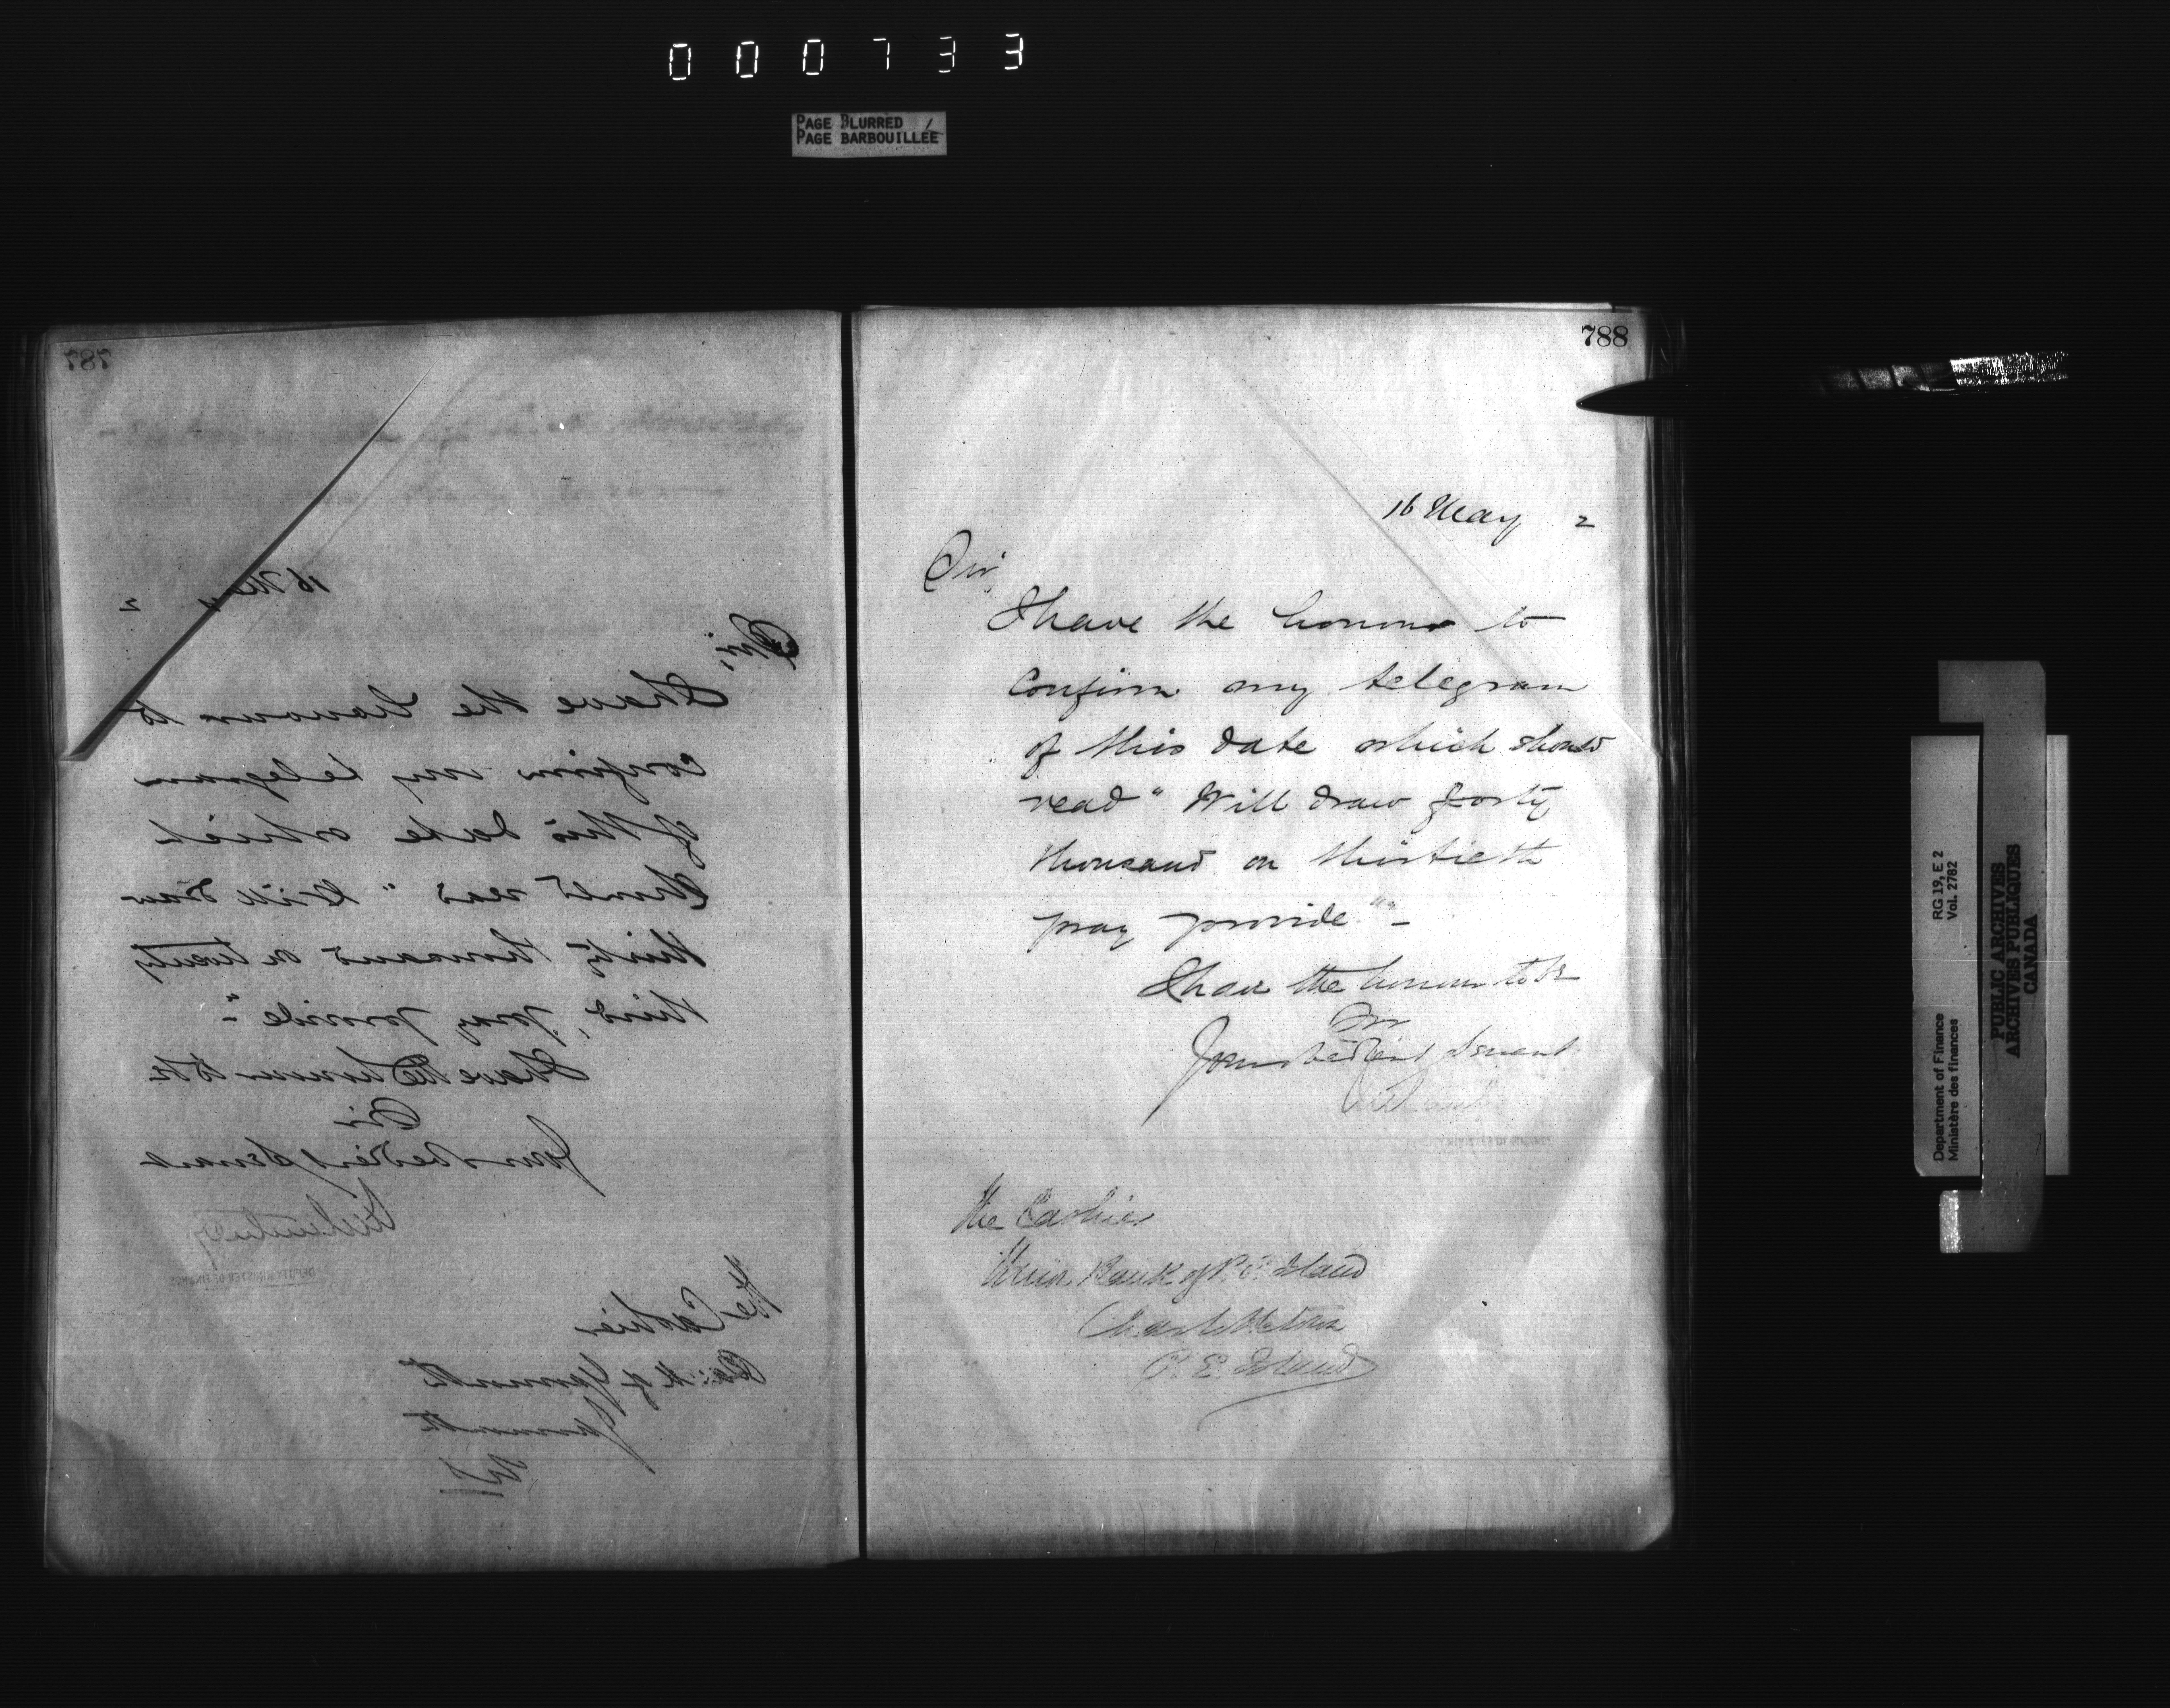 000733
PAGE BLURRED
PAGE BARBOUILLÉE
787
16 May 2
Sir,
I have the honour to
confirm my telegram
of this date which
should read "Will draw
thirty thousand on twenty
third, pray provide"-
I have the honour to be
Sir
Your obedient servant
DEPUTY MINISTER OF FINANCE
The Cashier
Bank of Yarmouth
Yarmouth
NS
788
16 May 2
Sir,
I have the honour to
confirm my telegram
of this date which should
read "Will draw forty
thousand on thirtieth
pray provide"-
I have the honour to be
Sir
Your obedient servant
DEPUTY MINISTER OF FINANCE
The Cashier
Union Bank of P. E. Island
Charlottetown
P. E. Island
Department of Finance
Ministère des finances
RG 19, E 2
Vol. 2782
PUBLIC ARCHIVES
ARCHIVES PUBLIQUES
CANADA